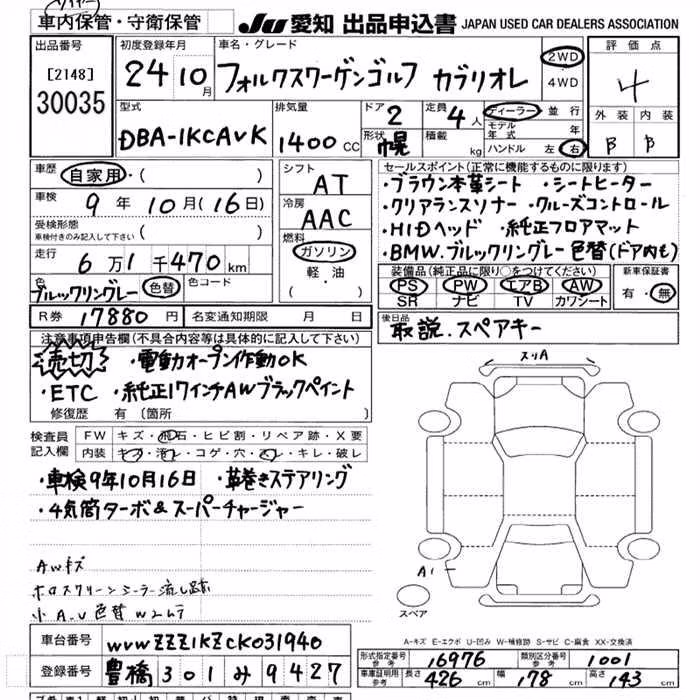 車内保管・守衛保管
JU 愛知 出品申込書 JAPAN USED CAR DEALERS ASSOCIATION
出品番号
[2148]
30035
初度登録年月
24 10月
車名・グレード
フォルクスワーゲンゴルフ カブリオレ
2WD
4WD
評価点
4
外装 内装
B B
型式
DBA-1KCAVK
排気量
1400 CC
ドア 2
形状 幌
定員 4人
積載 kg
ディーラー 並行
モデル年式 年
ハンドル 左・右
車歴
自家用・( )
車検 9年10月(16日)
受検形態
車検付きのみ記入して下さい ( )
走行 6万1千470km
色
ブルックリングレー 色替 色コード
シフト
AT
冷房
AAC
燃料
ガソリン
軽・油
( )
セールスポイント(正常に機能するものに限ります)
・ブラウン本革シート ・シートヒーター
・クリアランスソナー ・クルーズコントロール
・HIDヘッド ・純正フロアマット
・BMW.ブルックリングレー色替(ドア内も)
装備品(純正品に限り○をつけてください)
PS PW エアB AW
SR ナビ TV カワシート
新車保証書
有・無
R券 17880円 名変通知期限 月 日
後日品
取説.スペアキー
注意事項申告欄(不具合内容等は具体的に記入して下さい)
売切 ・電動オープン作動OK
・ETC ・純正17インチAWブラックペイント
修復歴 有 〔箇所 〕
検査員記入欄
FW キズ・飛石・ヒビ割・リペア跡・X要
内装 キズ・汚レ・コゲ・穴・スレ・キレ・破レ
・車検9年10月16日 ・革巻きステアリング
・4気筒ターボ&スーパーチャージャー
AWキズ
小A.U 色替
スリA
A1
スペア
A-キズ E-エクボ U-凹み W-補修跡 S-サビ C-腐食 XX-交換済
車台番号 WVWZZZ1KZCK031940
登録番号 豊橋 301 み 9427
形式指定番号 参考 16976 類別区分番号 参考 1001
車庫証明用 参考 長さ 426cm 幅 178cm 高さ 143cm